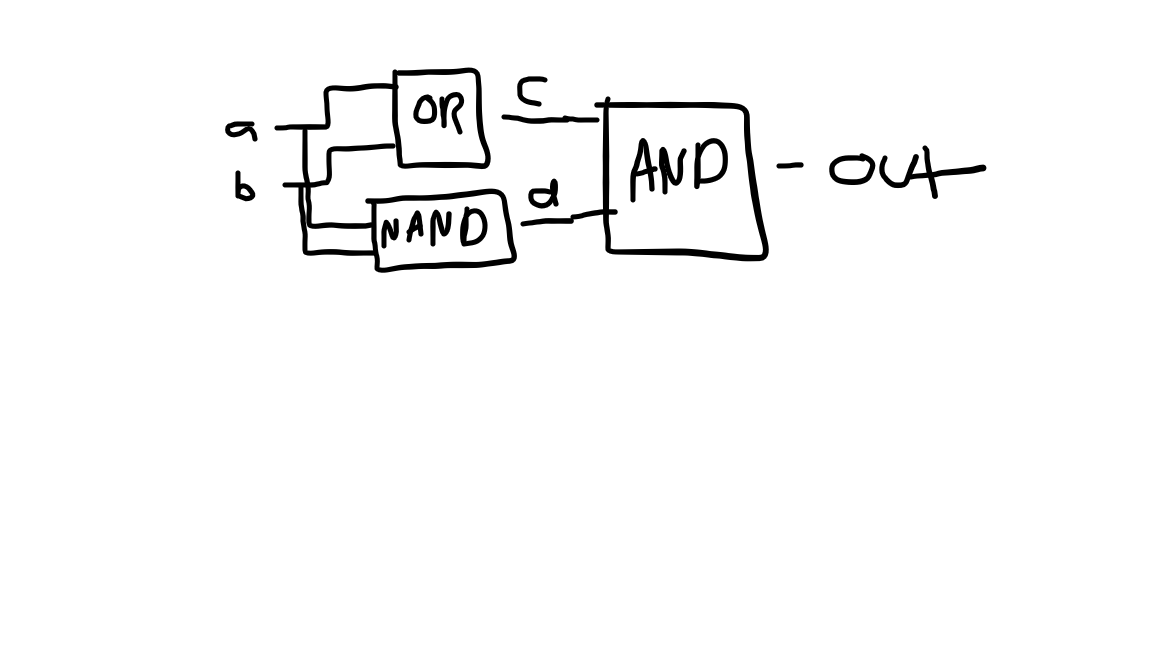 a
b
OR
NAND
c
d
AND
out